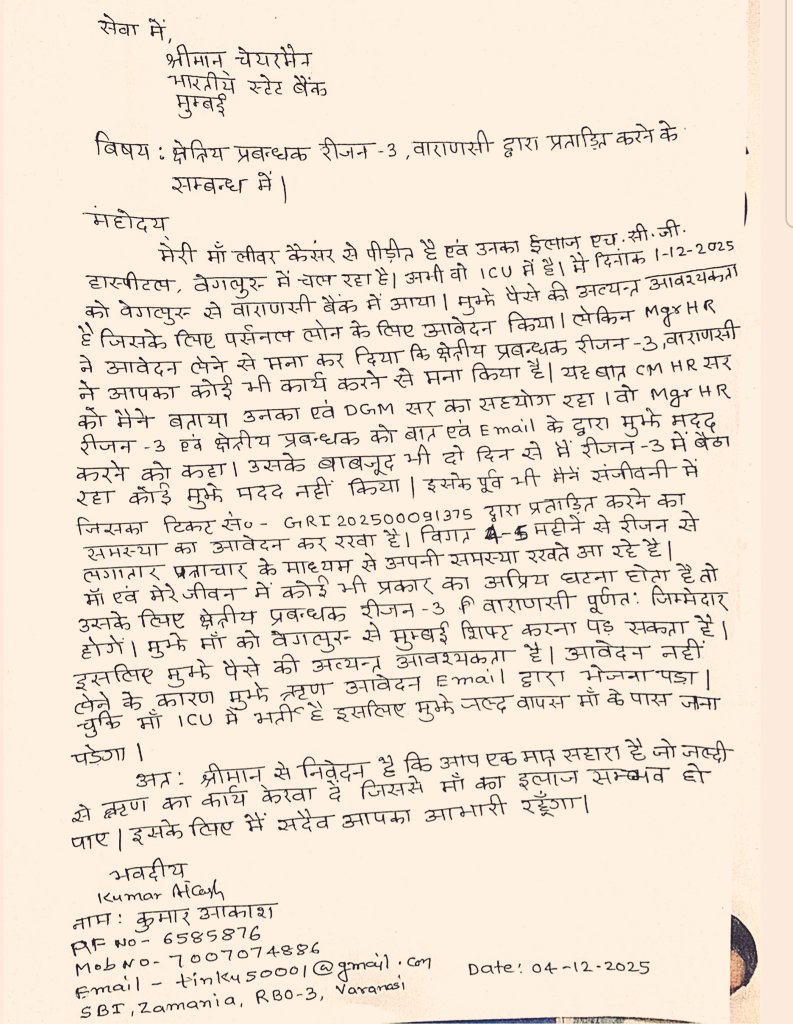 सेवा में,
श्रीमान चेयरमैन
भारतीय स्टेट बैंक
मुम्बई
विषय : क्षेत्रिय प्रबन्धक रीजन -3, वाराणसी द्वारा प्रताड़ित करने के
सम्बन्ध में |
महोदय
मेरी माँ लीवर कैंसर से पीड़ीत है एवं उनका ईलाज एच. सी. जी.
हास्पीटल, वेंगलुरू में चल रहा है| अभी वो ICU में है| मै दिनांक 1-12-2025
को वेगलुरू से वाराणसी बैंक में आया | मुझे पैसे की अत्यन्त आवश्यकता
है जिसके लिए पर्सनल लोन के लिए आवेदन किया| लेकिन Mgr HR
ने आवेदन लेने से मना कर दिया कि क्षेतीय प्रबन्धक रीजन -3, वाराणसी
ने आपका कोई भी कार्य करने से मना किया है| यह बात CM HR सर
को मैने बताया उनका एवं DGM सर का सहयोग रहा | वो Mgr HR
रीजन -3 एवं क्षेतीय प्रबन्धक को बात एवं Email के द्वारा मुझे मदद
करने को कहा | उसके बाबजूद भी दो दिन से मैं रीजन -3 में बैठा
रहा कोई मुझे मदद नहीं किया | इसके पूर्व भी मैनें संजीवनी में
जिसका टिकट सं०- GRI202500091375 द्वारा प्रताड़ित करने का
समस्या का आवेदन कर रखा है| विगत 4-5 महीने से रीजन से
लगातार पत्राचार के माध्यम से अपनी समस्या रखते आ रहे है|
माँ एवं मेरे जीवन में कोई भी प्रकार का अप्रिय घटना होता है तो
उसके लिए क्षेतीय प्रबन्धक रीजन -3 वाराणसी पूर्णत: जिम्मेदार
होगें | मुझे माँ को वेगलुरू से मुम्बई शिफ्ट करना पड़ सकता है|
इसलिए मुझे पैसे की अत्यन्त आवश्यकता है | आवेदन नहीं
लेने के कारण मुझे ऋण आवेदन Email द्वारा भेजना पड़ा |
चुकि माँ ICU में भर्ती है इसलिए मुझे जल्द वापस माँ के पास जाना
पडेगा |
अत: श्रीमान से निवेदन है कि आप एक मात्र सहारा है जो जल्दी
से ऋण का कार्य करवा दें जिससे माँ का इलाज सम्भव हो
पाए | इसके लिए मैं सदैव आपका आभारी रहूँगा|
भवदीय
Kumar Akash
नाम: कुमार आकाश
PF NO- 6585876
Mob NO- 7007074886
Email - tinku50001@gmail.com
SBI, Zamania, RBO-3, Varanasi
Date: 04-12-2025